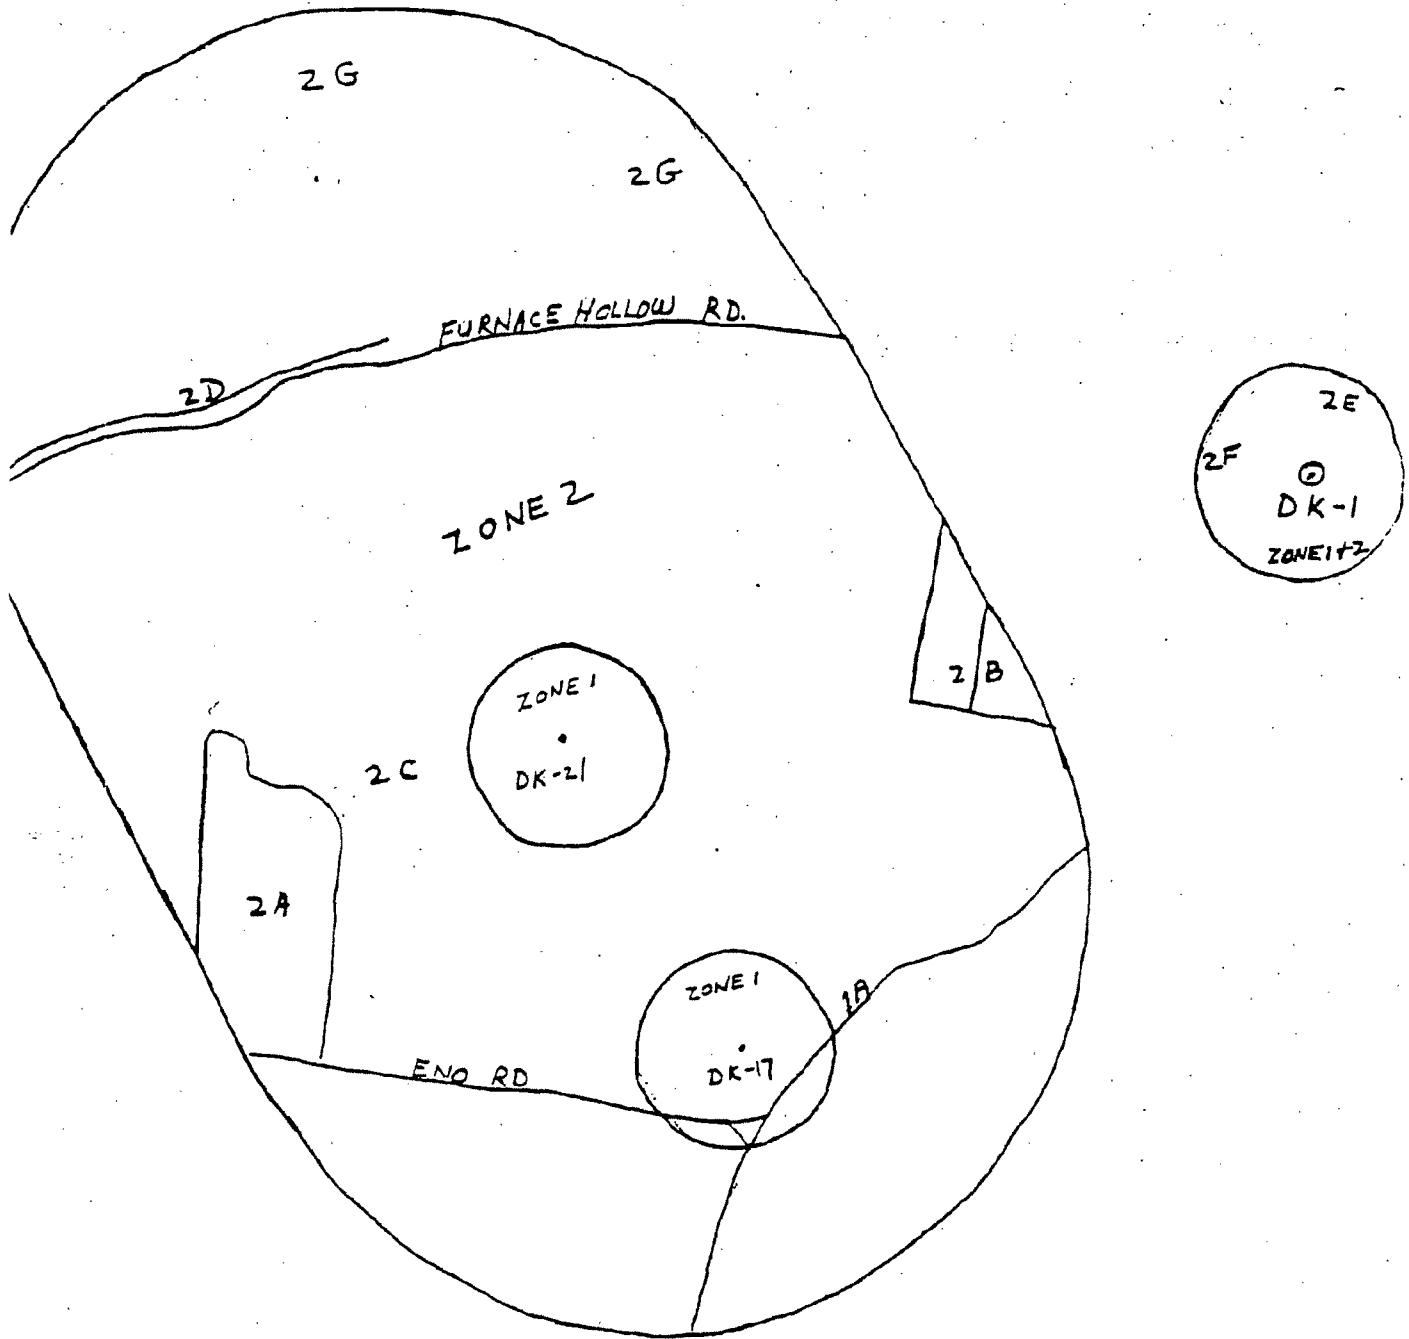 2G
2G
FURNACE HOLLOW RD.
2D
2E
2F
DK-1
ZONE1+2
ZONE 2
2 B
ZONE 1
DK-21
2C
2A
ZONE 1
1A
DK-17
ENO RD